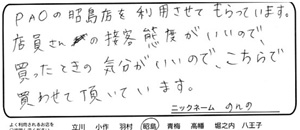 PAOの昭島店を利用させてもらっています。
店員さんの接客態度がいいので、
買ったときの気分がいいので、こちらで
買わせて頂いています。
ニックネーム のんの
よく利用されるお店を
立川 小作 羽村 昭島 青梅 高幡 堀之内 八王子